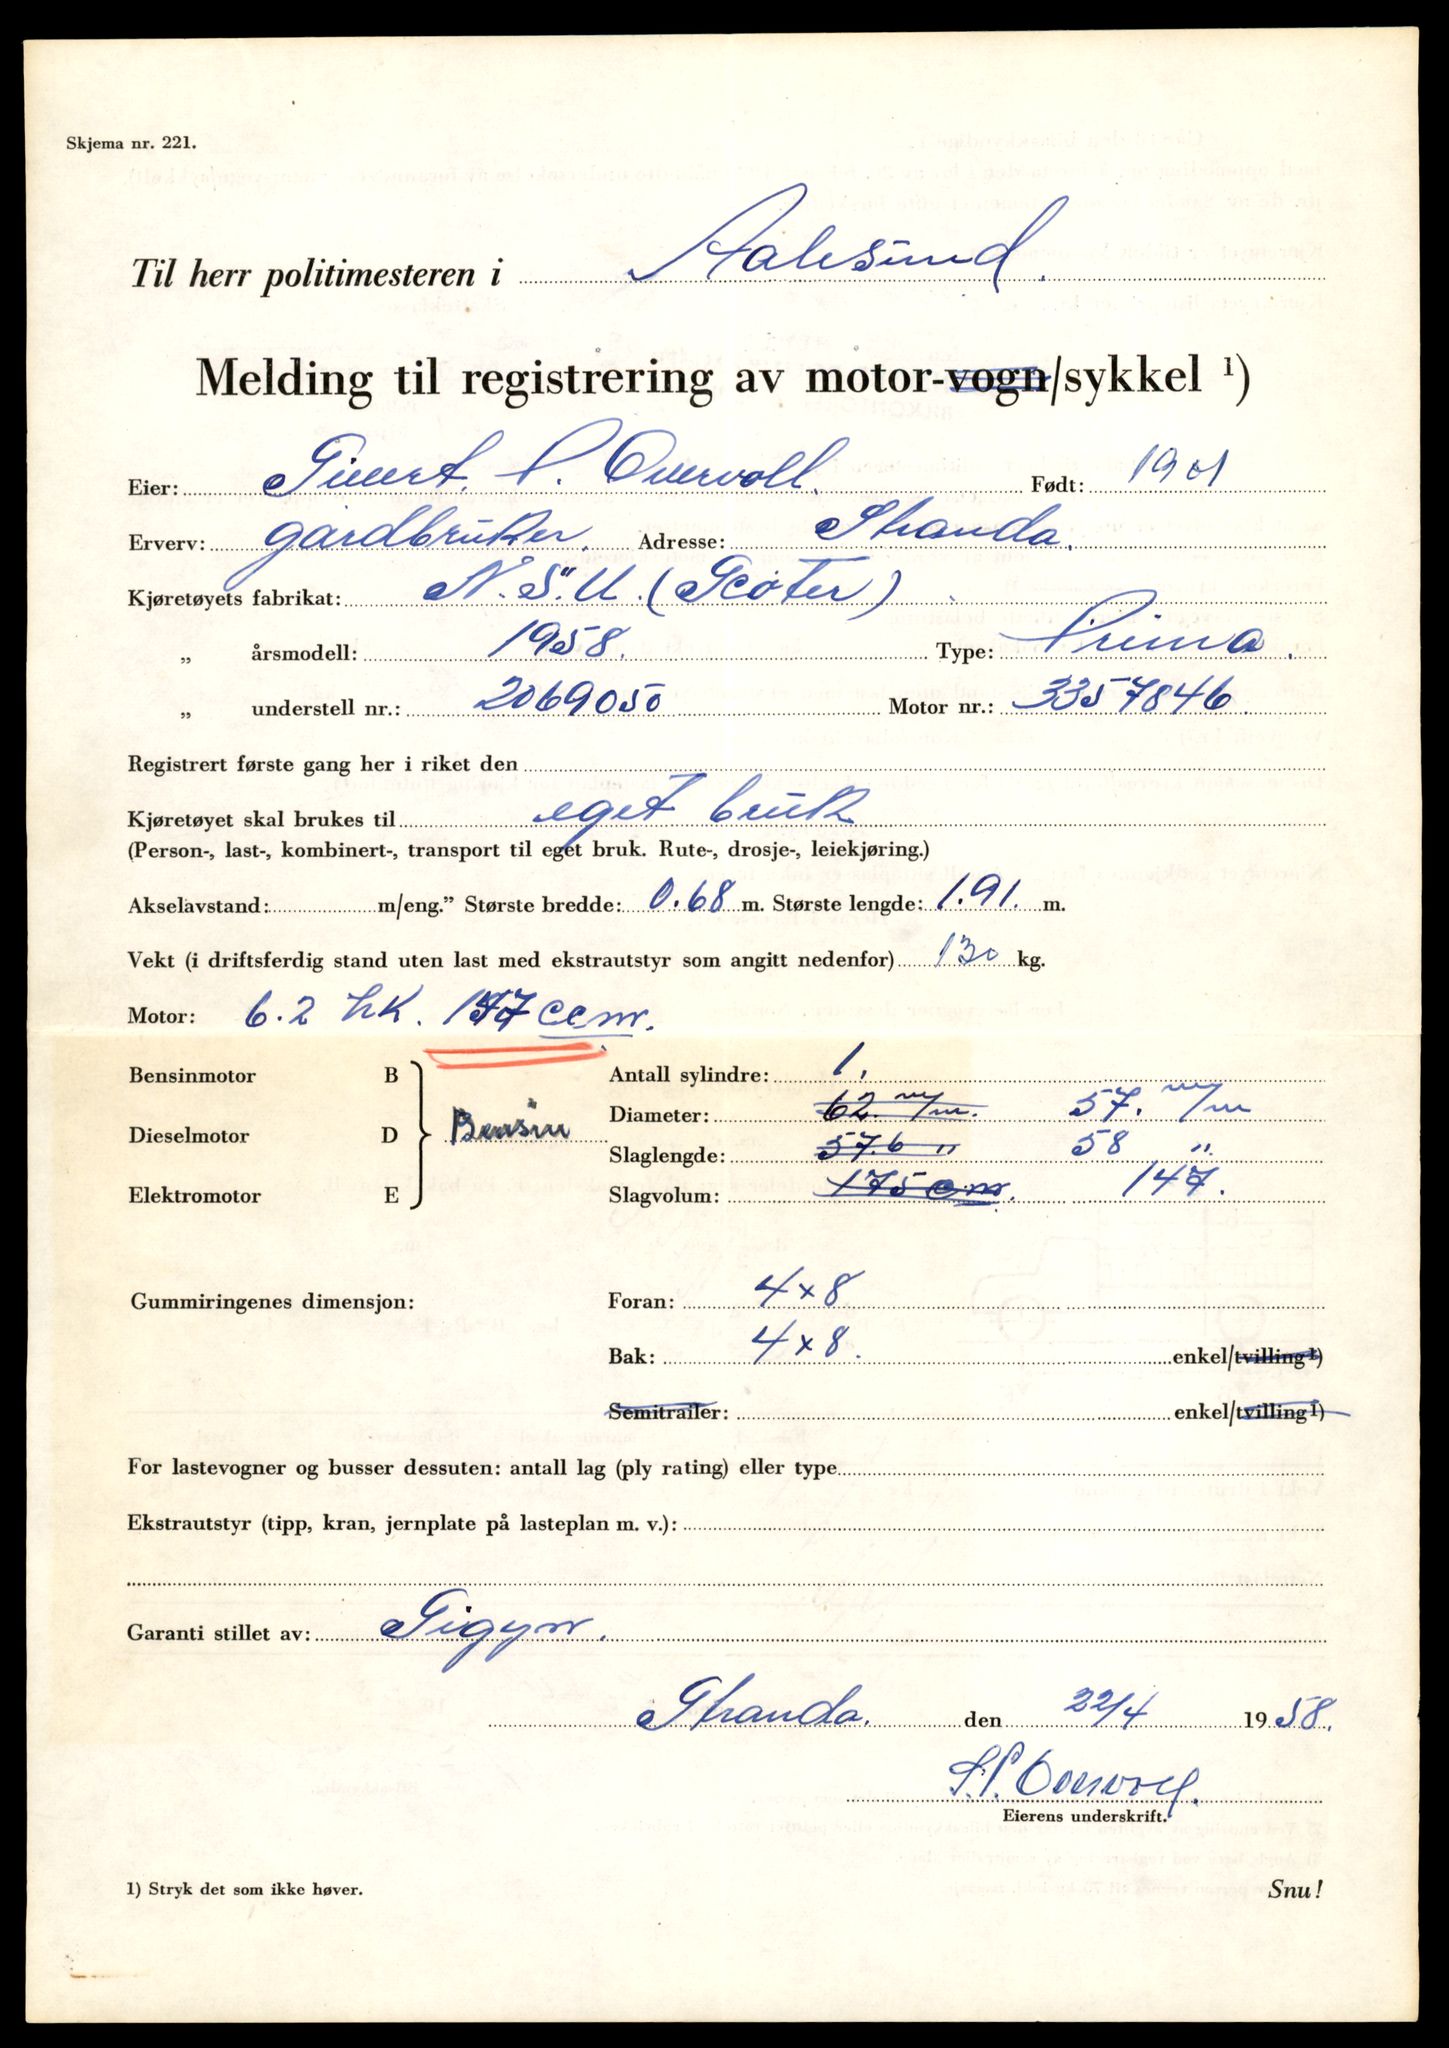 Skjema nr. 221.
Til herr politimesteren i Aalesund.
Melding til registrering av motor-vogn/sykkel ¹)
Eier: Sivert. P. Overvoll. Født: 1901
Erverv: gårdbruker. Adresse: Stranda.
Kjøretøyets fabrikat: N.S.U. (Scoter)
„ årsmodell: 1958. Type: Prima.
„ understell nr.: 2069050 Motor nr.: 3357846
Registrert første gang her i riket den
Kjøretøyet skal brukes til eget bruk
(Person-, last-, kombinert-, transport til eget bruk. Rute-, drosje-, leiekjøring.)
Akselavstand: m/eng.” Største bredde: 0.68 m. Største lengde: 1.91. m.
Vekt (i driftsferdig stand uten last med ekstrautstyr som angitt nedenfor) 130 kg.
Motor: 6.2 hk. 147 ccm.
Bensinmotor B Antall sylindre: 1.
Diameter: 62 m/m. 57. m/m
Dieselmotor D Bensin
Slaglengde: 57.6 „ 58 „
Elektromotor E Slagvolum: 175 cm. 147.
Gummiringenes dimensjon: Foran: 4x8
Bak: 4x8. enkel/tvilling¹)
Semitrailer: enkel/tvilling¹)
For lastevogner og busser dessuten: antall lag (ply rating) eller type
Ekstrautstyr (tipp, kran, jernplate på lasteplan m. v.):
Garanti stillet av: Sigyn.
Stranda. den 22/4 1958.
S.P. Overvoll.
Eierens underskrift.
1) Stryk det som ikke høver.
Snu!